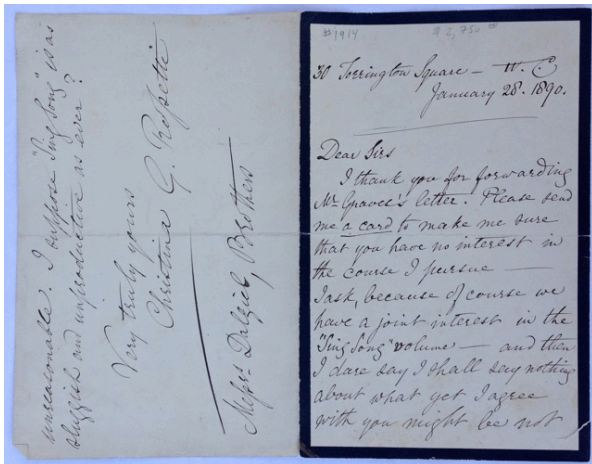 #1914 $2,750 00
30 Torrington Square — W. C
January 28. 1890.
Dear Sirs
I thank you for forwarding
Mr Graves's letter. Please send
me a card to make me sure
that you have no interest in
the course I pursue —
I ask, because of course we
have a joint interest in the
"Sing Song" volume — and then
I dare say I shall say nothing
about what yet I agree
with you might be not
unreasonable. I suppose "Sing Song" is as
sluggish and unproductive as ever?
Very truly yours
Christina G. Rossetti
Messrs. Dalziel, Brothers